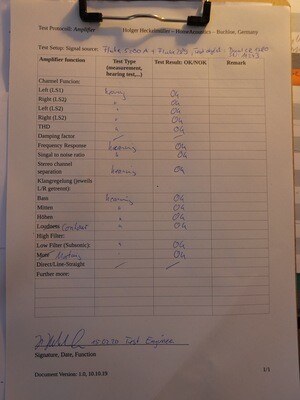 Test Protocol: Amplifier
HomeAcoustics – Buchloe, Germany
Test Setup: Signal source:
Amplifier function Test Type (measurement, hearing test,...) Test Result: OK/NOK Remark
Channel Function:
Left (LS1) hearing Ok
Right (LS2) " Ok
Left (LS2) " Ok
Right (LS2) " Ok
THD " Ok
Damping factor
Frequency Response hearing Ok
Singal to noise ratio " Ok
Stereo channel separation hearing Ok
Klangregelung (jeweils L/R getrennt):
Bass hearing Ok
Mitten " Ok
Höhen " Ok
Loudness Contour " Ok
High Filter:
Low Filter (Subsonic): " Ok
Mute " Ok
Direct/Line-Straight
Further more:
Test Engineer
Signature, Date, Function
Document Version: 1.0, 10.10.19
1/1